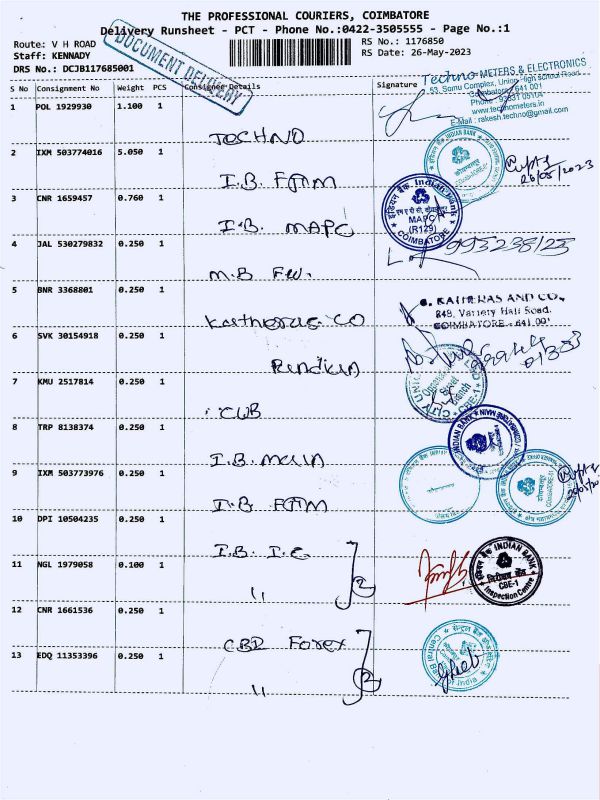 THE PROFESSIONAL COURIERS, COIMBATORE
Delivery Runsheet - PCT - Phone No.:0422-3505555 - Page No.:1
Route: V H ROAD
RS No.: 1176850
Staff: KENNADY
RS Date: 26-May-2023
DRS No.: DCJB117685001
DOCUMENT DELIVERY
S No Consignment No Weight PCS Consignee Details Signature
Techno METERS & ELECTRONICS
53, Somu Complex, Union High School Road
Coimbatore - 641 001
www.technometers.in
E-Mail : rakesh.techno@gmail.com
1 POL 1929930 1.100 1
TECHNO
2 IXM 503774016 5.050 1
I.B. FTM
INDIAN BANK
26/05/2023
3 CNR 1659457 0.760 1
I.B. MAPC
इंडियन बैंक Indian Bank
MAPC
(R129)
COIMBATORE
4 JAL 530279832 0.250 1
M.B FW.
5 BNR 3368801 0.250 1
Katheras CO
KATHERAS AND CO.,
848, Variety Hall Road,
COIMBATORE - 641 001
6 SVK 30154918 0.250 1
7 KMU 2517814 0.250 1
CUB
CITY UNION
CBE-1
8 TRP 8138374 0.250 1
I.B. main
INDIAN BANK
COIMBATORE MAIN
9 IXM 503773976 0.250 1
I.B FTM
10 DPI 10504235 0.250 1
I.B. I.C
11 NGL 1979058 0.100 1
"
2
इंडियन बैंक INDIAN BANK
CBE-1
Inspection Centre
12 CNR 1661536 0.250 1
CBD Forex
13 EDQ 11353396 0.250 1
"
2
सेन्ट्रल बैंक ऑफ इंडिया
Central Bank of India